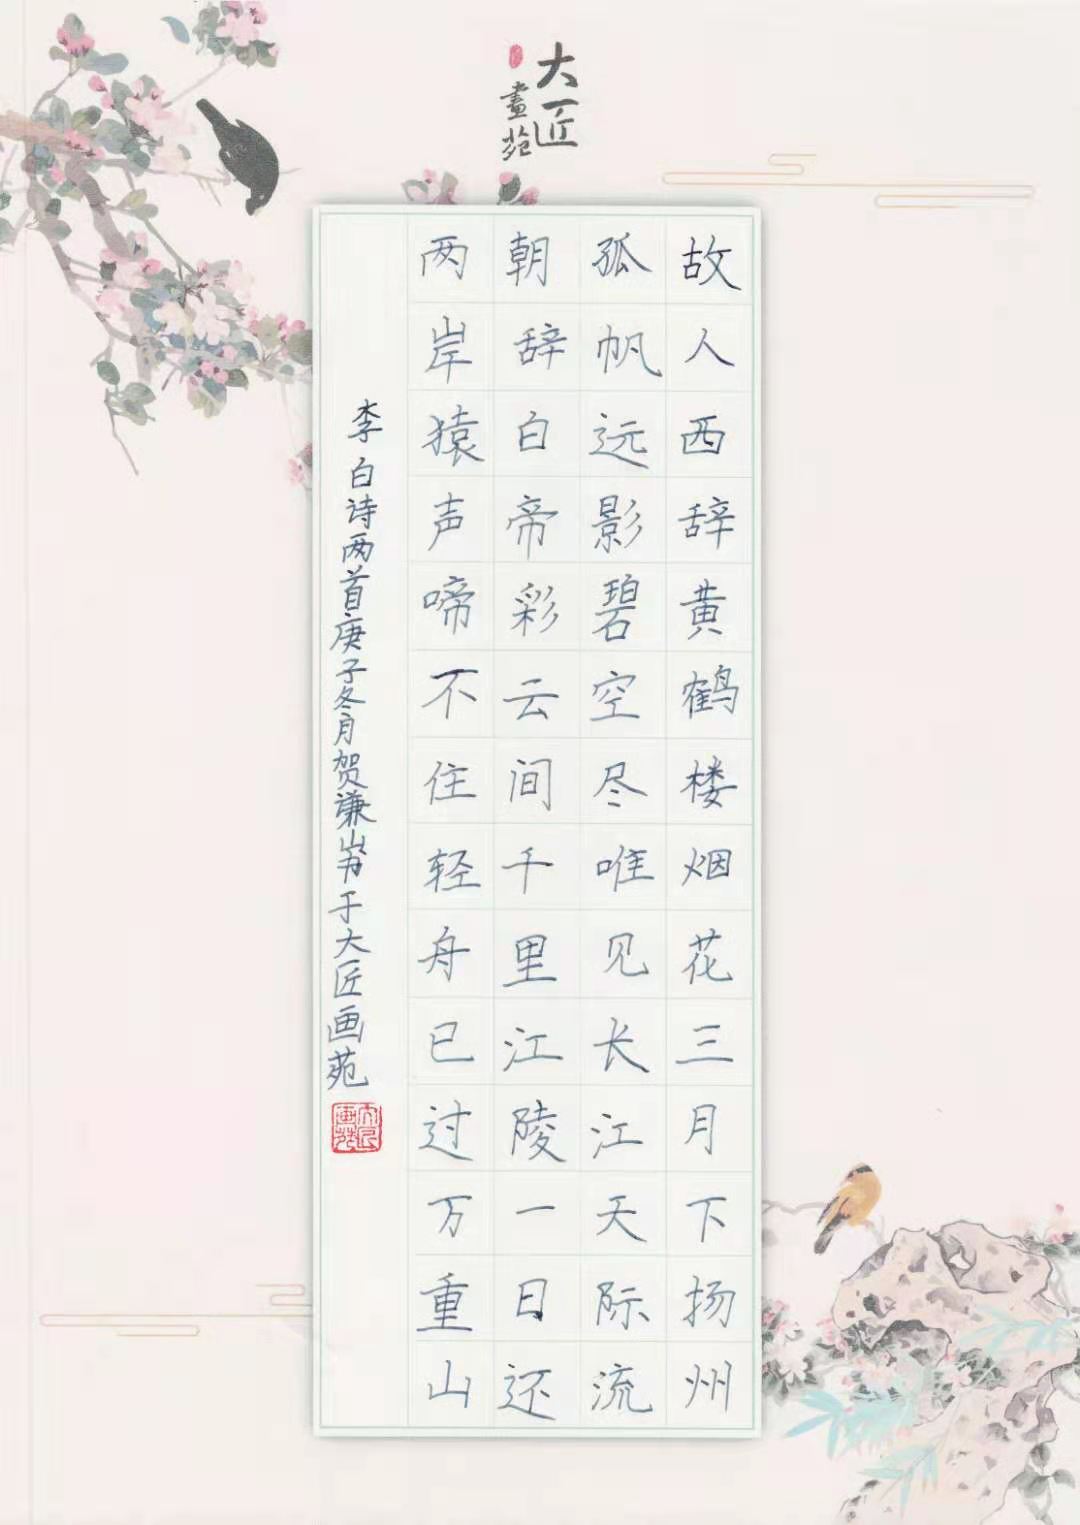 大匠
畫苑
故人西辞黄鹤楼烟花三月下扬州
孤帆远影碧空尽唯见长江天际流
朝辞白帝彩云间千里江陵一日还
两岸猿声啼不住轻舟已过万重山
李白诗两首庚子冬月贺谦崀书于大匠画苑
大匠画苑